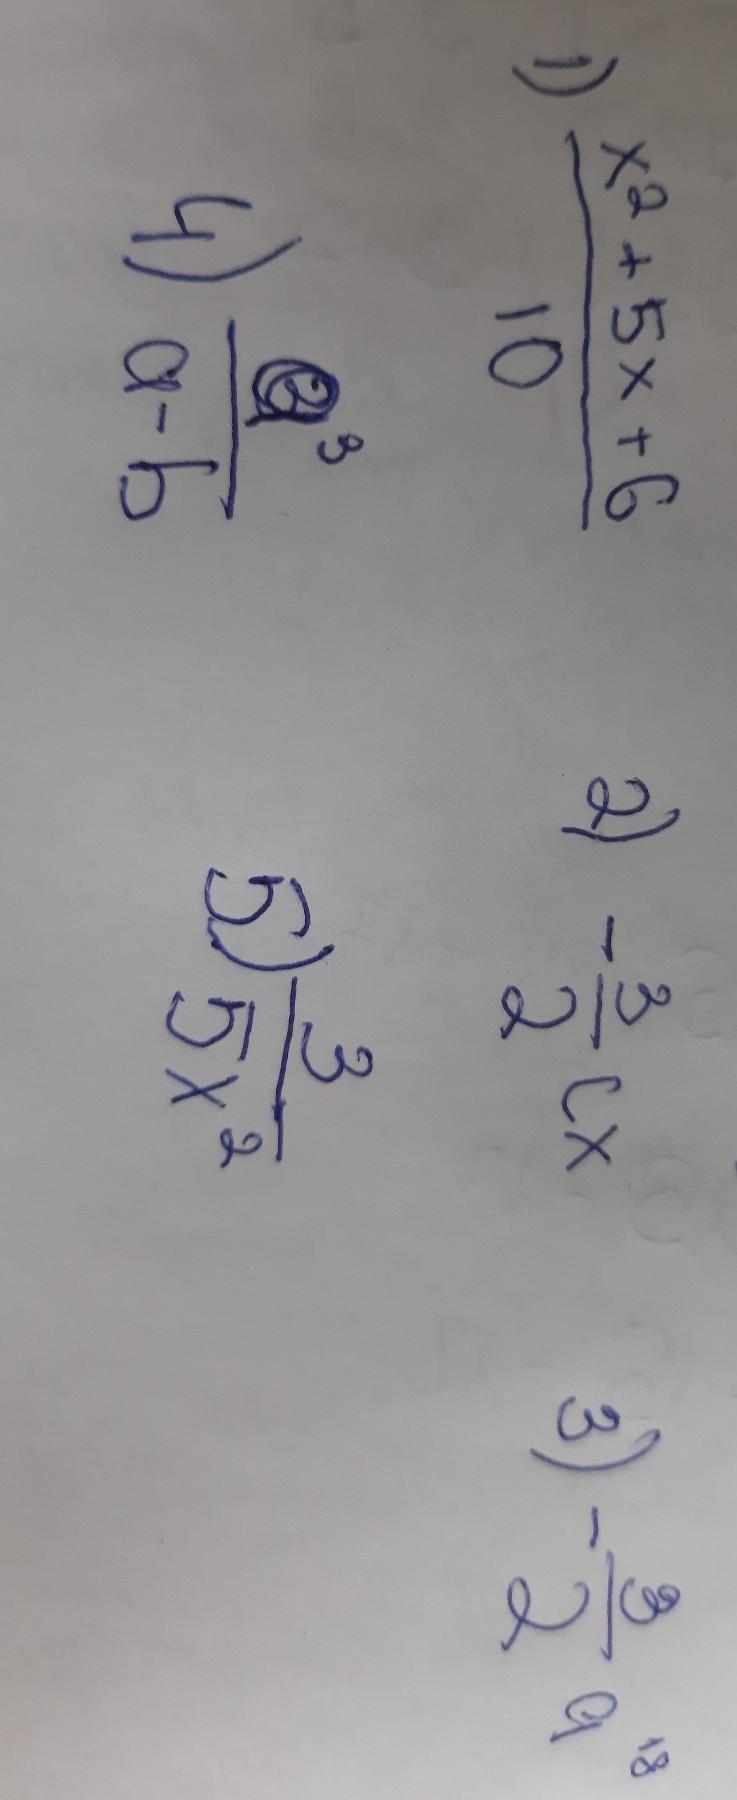 1) (x² + 5x + 6)/10 2) -3/2 cx 3) -3/2 a¹⁸
4) a³/(a-b) 5) 3/(5x²)